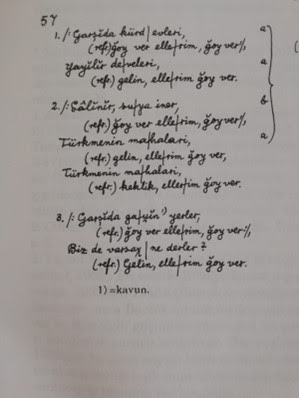 57
1. /: Garşıda kürd | evleri, a
(refr.) ğoy ver elle|rim, ğoy ver :/,
yayılır de|veleri, a
(refr.) gelin, elle|rim ğoy ver.
2. /: Ealınır, su|ya iner, b
(refr.) ğoy ver elle|rim, ğoy ver :/,
Türkmenin ma|halari, a
(refr.) gelin, elle|rim ğoy ver,
Türkmenin ma|halari,
(refr.) keklik, elle|rim ğoy ver.
3. /: Garşıda ga|yın 1) yerler,
(refr.) ğoy ver elle|rim, ğoy ver :/,
Biz de varsax | ne derler ?
(refr.) Gelin, elle|rim ğoy ver.
1) =kavun.